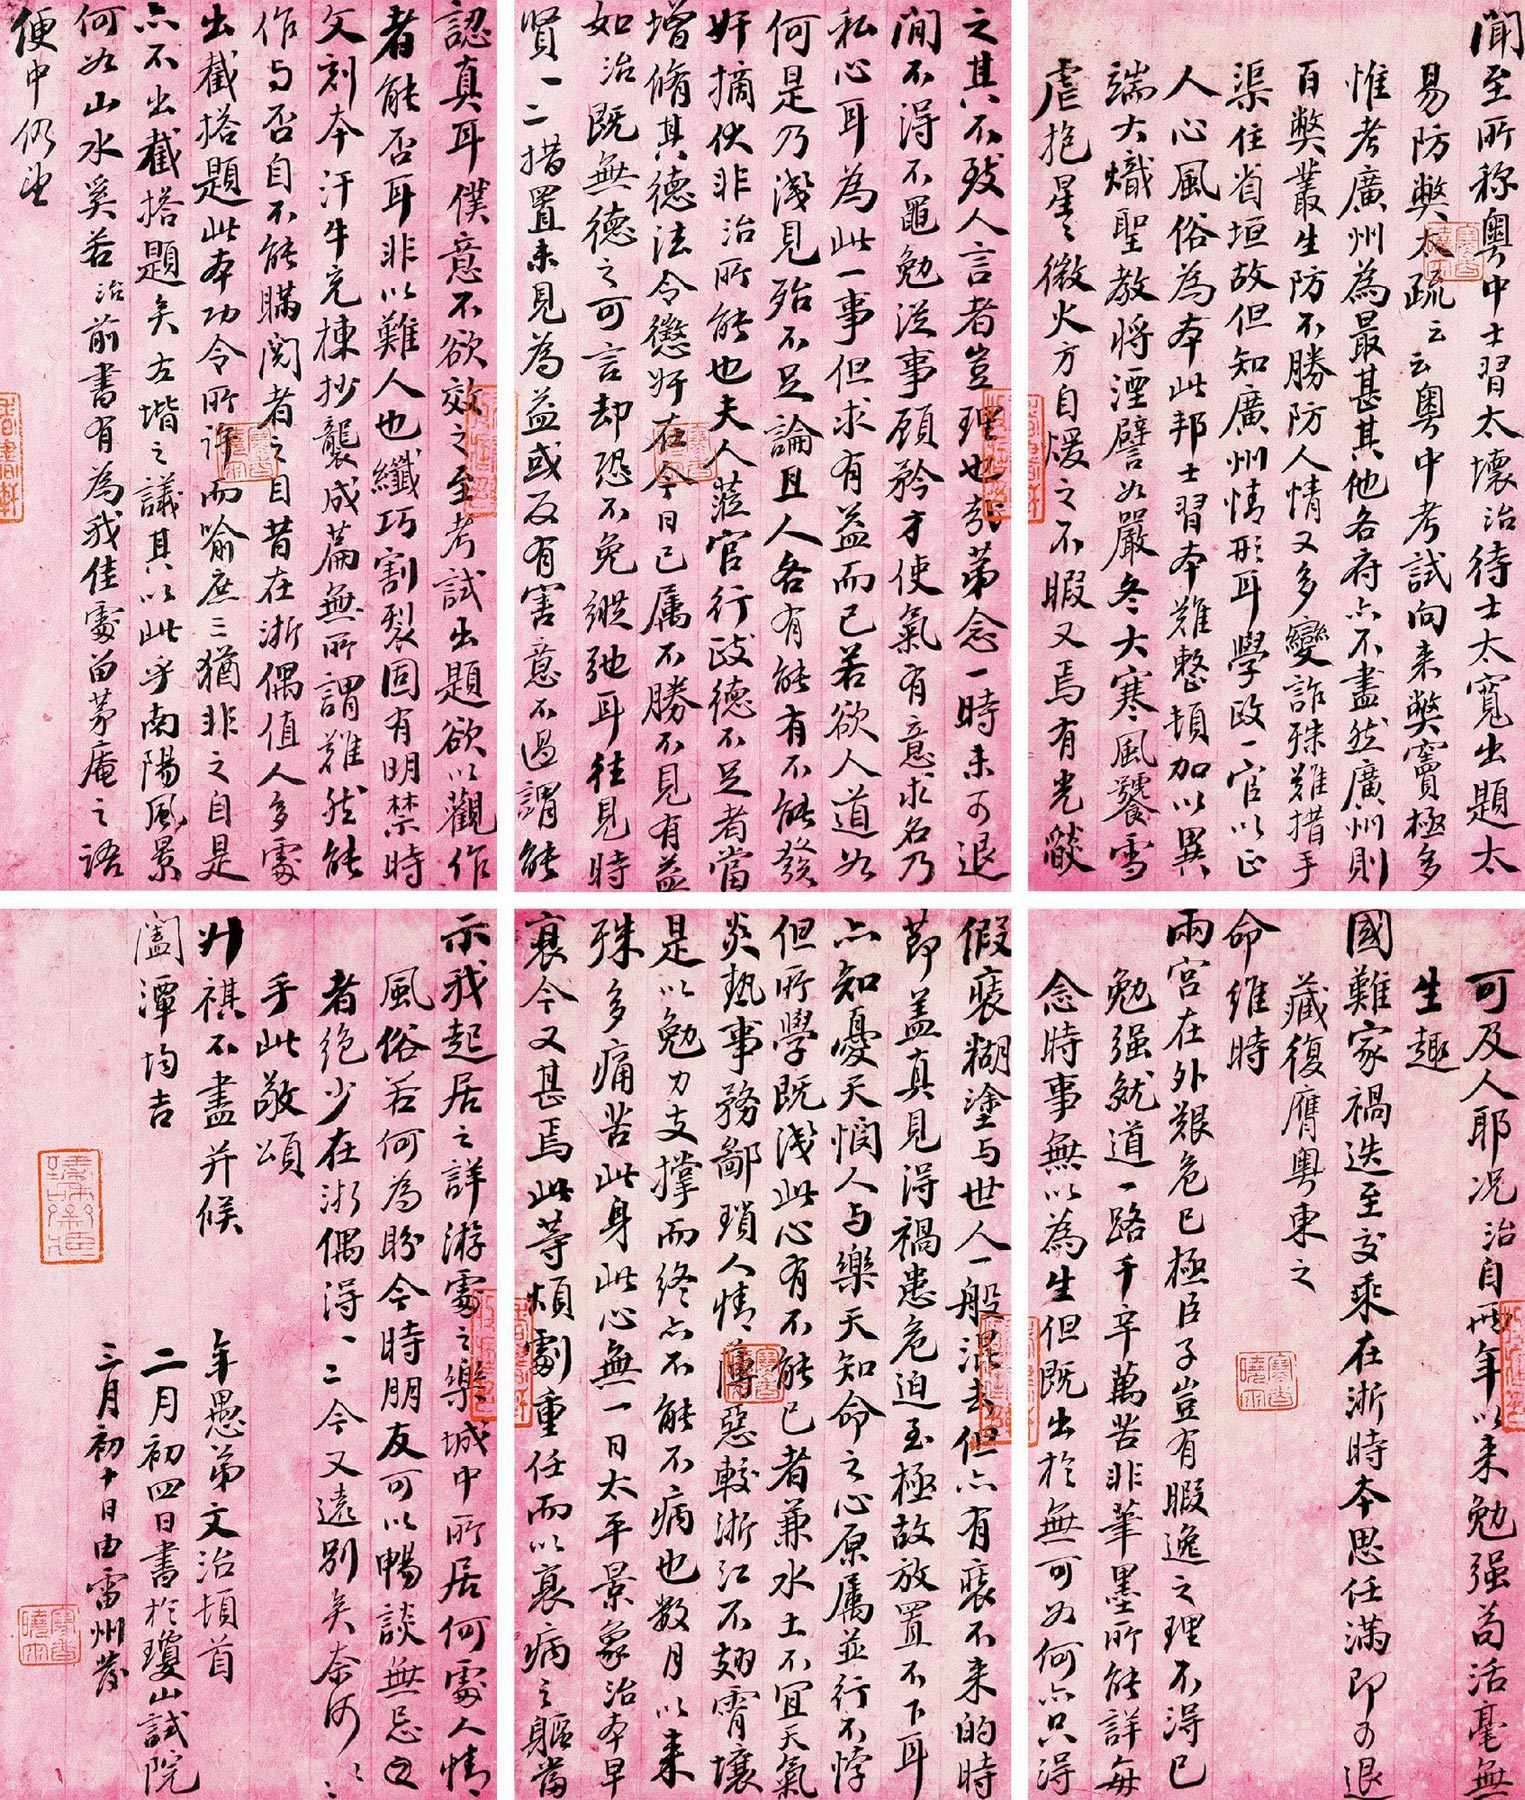 聞至所称粵中士習太壞治待士太寬出題太
易防弊太疏云云粵中考試向来弊竇極多
惟考廣州為最甚其他各府亦不盡然廣州則
百弊叢生防不勝防人情又多變詐殊難措手
渠住省垣故但知廣州情形耳學政一官以正
人心風俗為本此邦士習本難整頓加以異
端大熾聖教將湮譬如嚴冬大寒風饕雪
虐抱星星微火方自煖之不暇又焉有光燄
之其不致人言者豈理也哉弟念一時未可退
閒不得不黽勉從事顧矜才使氣有意求名乃
私心耳為此一事但求有益而已若欲人道如
何是乃淺見殆不足論且人各有能有不能發
奸摘伏非治所能也夫人蒞官行政德不足者當
增脩其德法令懲奸在今日已属不勝不見有益
如治既無德之可言却恐不免縱弛耳往見時
賢一二措置未見為益或反有害意不過謂能
認真耳僕意不欲效之至考試出題欲以觀作
者能否耳非以難人也纖巧割裂固有明禁時
文刻本汗牛充棟抄襲成篇無所謂難然能
作与否自不能瞞閱者之目昔在浙偶值人多處
出截搭題此本功令所許而喻庶三猶非之自是
亦不出截搭題矣左堦之議其以此乎南陽風景
何如山水奚若治前書有為我佳處留茅庵之語
便中仍望
可及人耶况治自卌年以来勉强苟活毫無
生趣
國難家禍迭至交乘在浙時本思任滿即可退
藏復膺粵東之
命維時
兩宮在外艱危已極臣子豈有暇逸之理不得已
勉强就道一路千辛萬苦非筆墨所能詳每
念時事無以為生但既出於無可如何亦只得
假裝糊塗与世人一般混去但亦有裝不来的時
節盖真見得禍患危迫至極故放置不下耳
亦知憂天憫人与樂天知命之心原属並行不悖
但所學既淺此心有不能已者兼水土不宜天氣
炎熱事務鄙瑣人情薄惡較浙江不翅霄壤
是以勉力支撐而終亦不能不病也数月以来
殊多痛苦此身此心無一日太平景象治本早
衰今又甚焉此等煩劇重任而以衰病之軀當
示我起居之詳游處之樂城中所居何處人情
風俗若何為盼今時朋友可以暢談無忌之
者絶少在浙偶得一二今又遠別矣奈何奈何
手此敬頌
升祺不盡并候
闔潭均吉
年愚弟文治頓首
二月初四日書於瓊山試院
三月初十日由雷州發